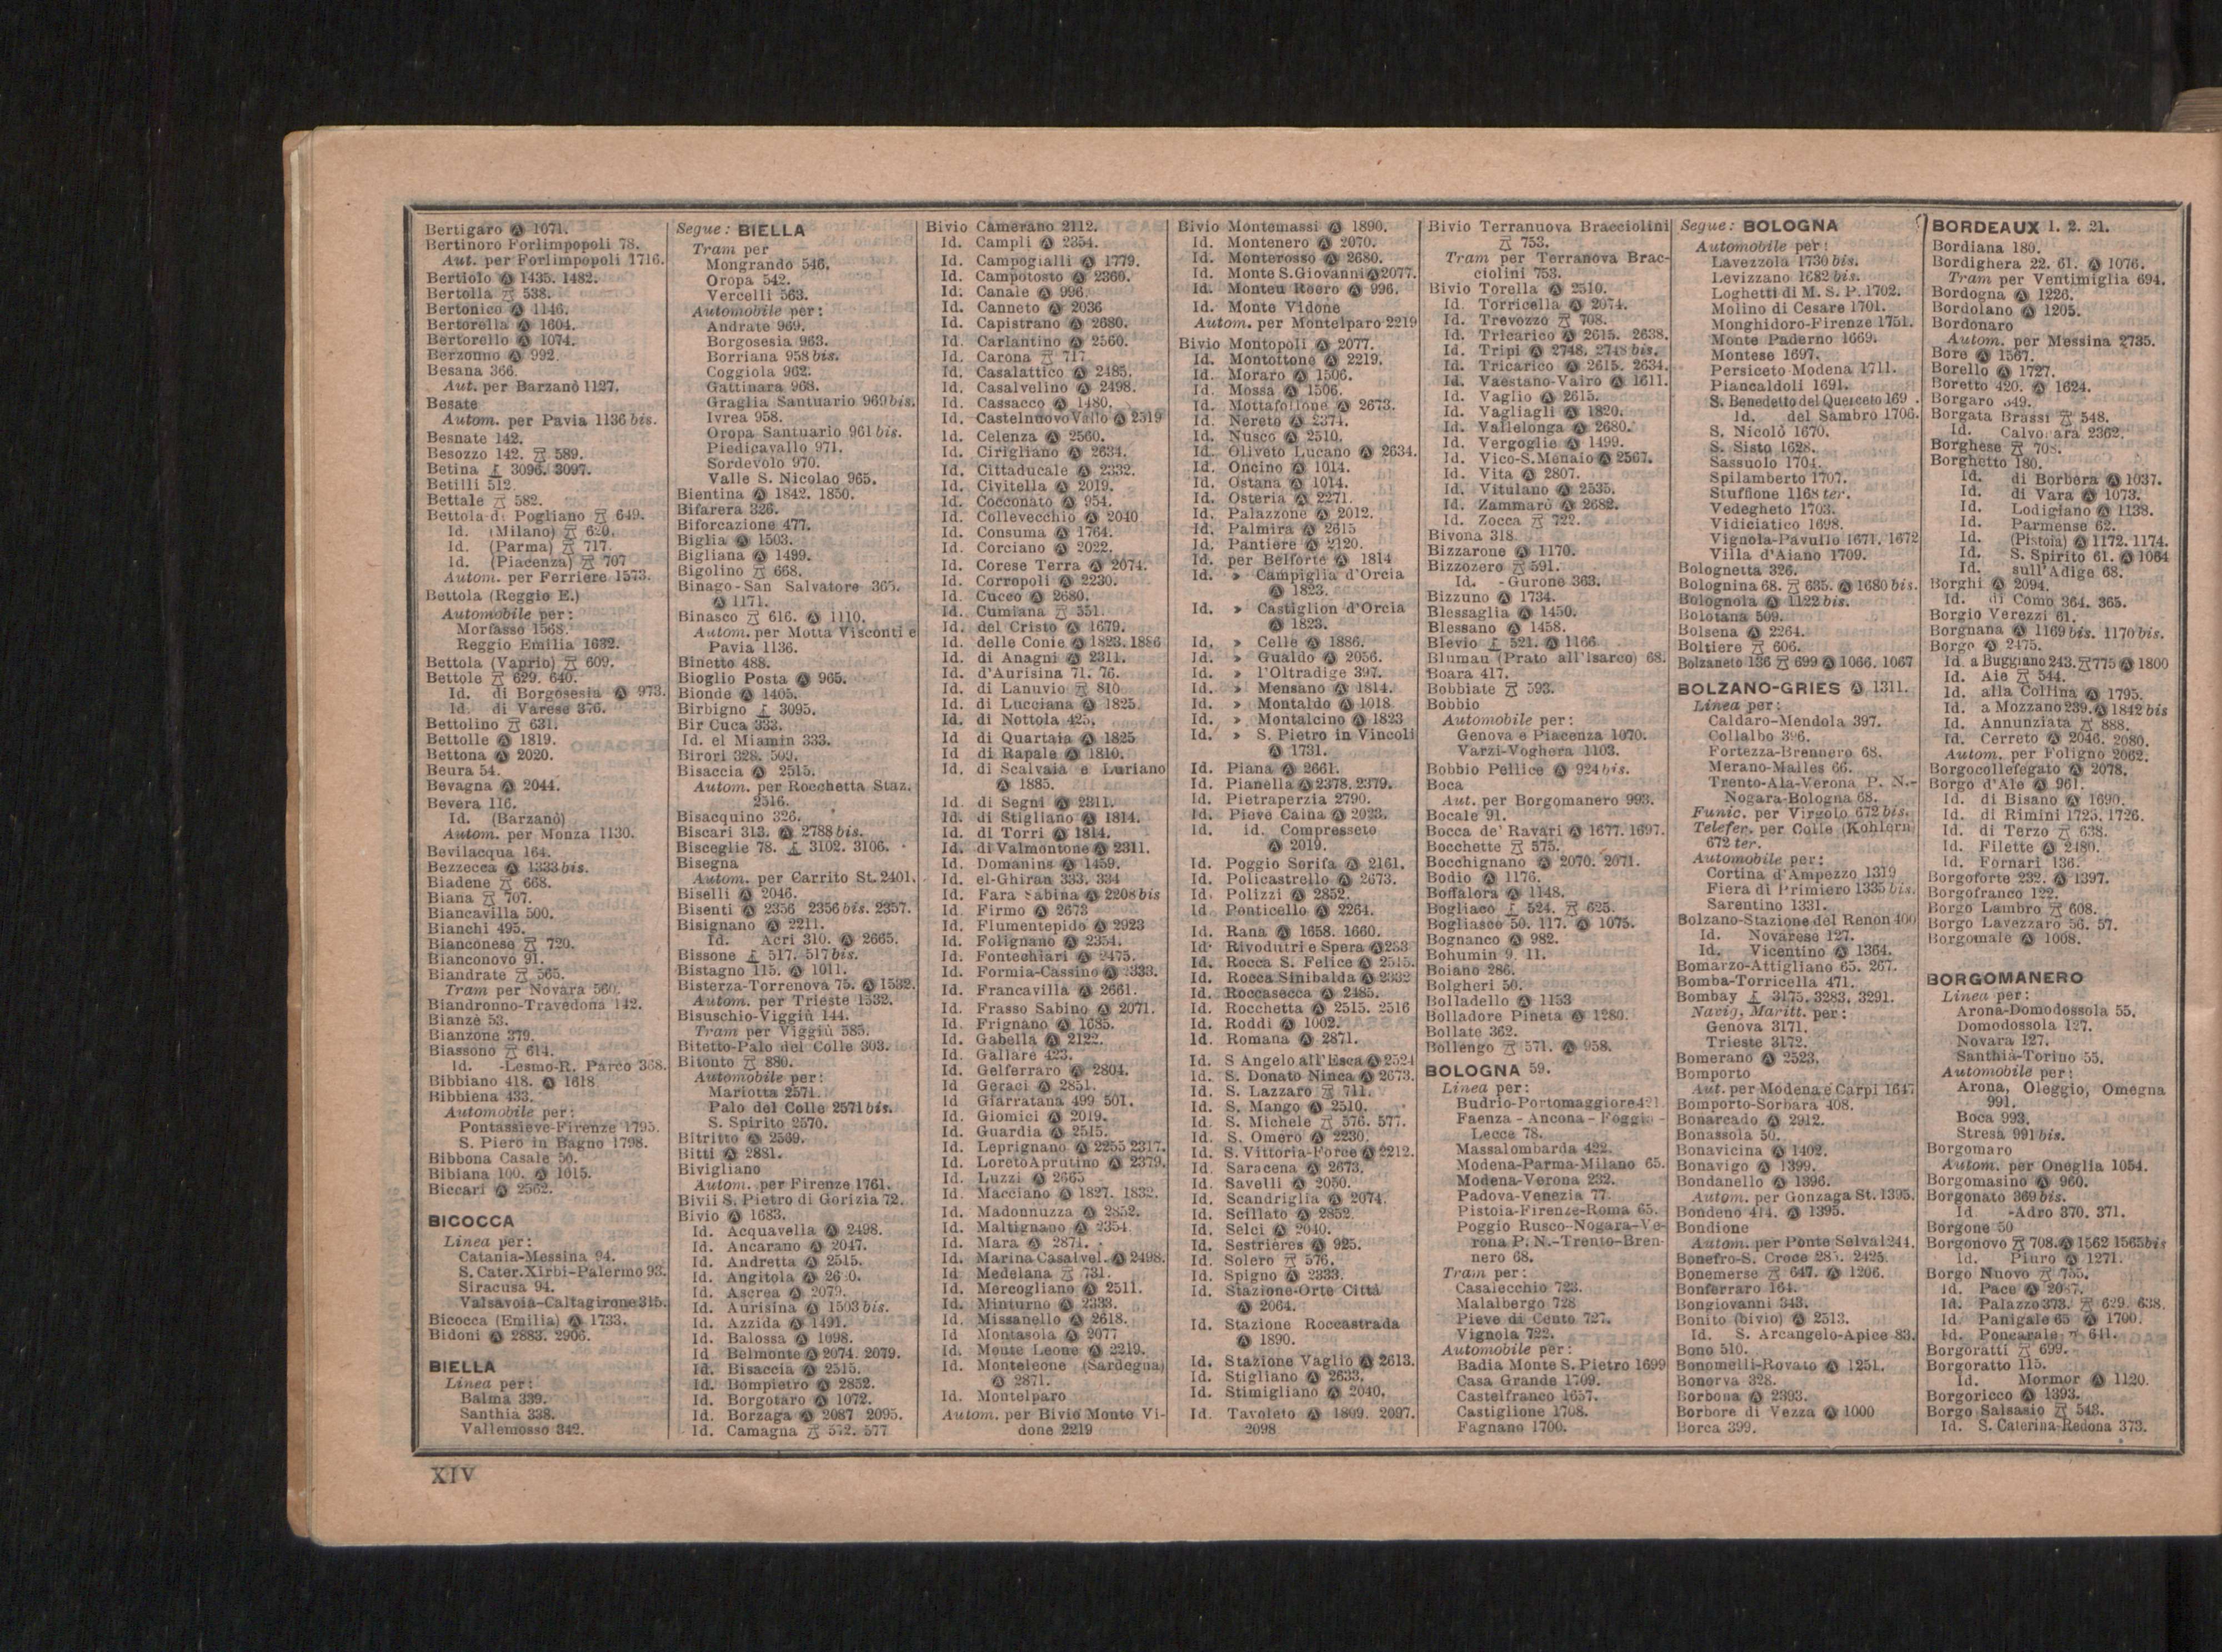 Bertigaro Ⓐ 1071.
Bertinoro Forlimpopoli 78.
Aut. per Forlimpopoli 1716.
Bertiolo Ⓐ 1435. 1482.
Bertolla 538.
Bertonico Ⓐ 1146.
Bertorella Ⓐ 1604.
Bertorello Ⓐ 1074.
Berzonno Ⓐ 992.
Besana 366.
Aut. per Barzanò 1127.
Besate
Autom. per Pavia 1136 bis.
Besnate 142.
Besozzo 142. 589.
Betina 3096. 3097.
Betilli 512.
Bettale 582.
Bettola di Pogliano 649.
Id. (Milano) 620.
Id. (Parma) 717.
Id. (Piacenza) 707
Autom. per Ferriere 1573.
Bettola (Reggio E.)
Automobile per:
Morfasso 1568.
Reggio Emilia 1632.
Bettola (Vaprio) 609.
Bettole 629. 640.
Id. di Borgosesia Ⓐ 973.
Id. di Varese 376.
Bettolino 631.
Bettolle Ⓐ 1819.
Bettona Ⓐ 2020.
Beura 54.
Bevagna Ⓐ 2044.
Bevera 116.
Id. (Barzanò)
Autom. per Monza 1130.
Bevilacqua 164.
Bezzecca Ⓐ 1333 bis.
Biadene 668.
Biana 707.
Biancavilla 500.
Bianchi 495.
Bianconese 720.
Bianconovo 91.
Biandrate 565.
Tram per Novara 560.
Biandronno-Travedona 142.
Bianzè 53.
Bianzone 379.
Biassono 614.
Id. -Lesmo-R. Parco 368.
Bibbiano 418. Ⓐ 1618.
Bibbiena 433.
Automobile per:
Pontassieve-Firenze 1795.
S. Piero in Bagno 1798.
Bibbona Casale 50.
Bibiana 100. Ⓐ 1015.
Biccari Ⓐ 2562.
BICOCCA
Linea per:
Catania-Messina 94.
S. Cater.Xirbi-Palermo 93.
Siracusa 94.
Valsavoia-Caltagirone 315.
Bicocca (Emilia) Ⓐ 1733.
Bidoni Ⓐ 2883. 2906.
BIELLA
Linea per:
Balma 339.
Santhià 338.
Vallemosso 342.
Segue: BIELLA
Tram per
Mongrando 546.
Oropa 542.
Vercelli 563.
Automobile per:
Andrate 969.
Borgosesia 963.
Borriana 958 bis.
Coggiola 962.
Gattinara 968.
Graglia Santuario 969 bis.
Ivrea 958.
Oropa Santuario 961 bis.
Piedicavallo 971.
Sordevolo 970.
Valle S. Nicolao 965.
Bientina Ⓐ 1842. 1850.
Bifarera 326.
Biforcazione 477.
Biglia Ⓐ 1503.
Bigliana Ⓐ 1499.
Bigolino 668.
Binago-San Salvatore 365.
Ⓐ 1171.
Binasco 616. Ⓐ 1110.
Autom. per Motta Visconti e
Pavia 1136.
Binetto 488.
Bioglio Posta Ⓐ 965.
Bionde Ⓐ 1405.
Birbigno 3095.
Bir Cuca 333.
Id. el Miamin 333.
Birori 328. 509.
Bisaccia Ⓐ 2515.
Autom. per Rocchetta Staz.
2516.
Bisacquino 326.
Biscari 313. Ⓐ 2788 bis.
Bisceglie 78. 3102. 3106.
Bisegna
Autom. per Carrito St. 2401.
Biselli Ⓐ 2046.
Bisenti Ⓐ 2356 2356 bis. 2357.
Bisignano Ⓐ 2211.
Id. Acri 310. Ⓐ 2665.
Bissone 517. 517 bis.
Bistagno 115. Ⓐ 1011.
Bisterza-Torrenova 75. Ⓐ 1532.
Autom. per Trieste 1532.
Bisuschio-Viggiù 144.
Tram per Viggiù 585.
Bitetto-Palo del Colle 303.
Bitonto 880.
Automobile per:
Mariotta 2571.
Palo del Colle 2571 bis.
S. Spirito 2570.
Bitritto Ⓐ 2569.
Bitti Ⓐ 2881.
Bivigliano
Autom. per Firenze 1761.
Bivii S. Pietro di Gorizia 72.
Bivio Ⓐ 1683.
Id. Acquavella Ⓐ 2498.
Id. Ancarano Ⓐ 2047.
Id. Andretta Ⓐ 2515.
Id. Angitola Ⓐ
Id. Ascrea Ⓐ 2079.
Id. Aurisina Ⓐ 1503 bis.
Id. Azzida Ⓐ 1491.
Id. Balossa Ⓐ 1098.
Id. Belmonte Ⓐ 2074. 2079.
Id. Bisaccia Ⓐ 2515.
Id. Bompietro Ⓐ 2852.
Id. Borgotaro Ⓐ 1072.
Id. Borzaga Ⓐ 2087 2095.
Id. Camagna 572. 577
Bivio Camerano 2112.
Id. Campli Ⓐ 2354.
Id. Campogialli Ⓐ 1779.
Id. Campotosto Ⓐ 2360.
Id. Canale Ⓐ 996.
Id. Canneto Ⓐ 2036
Id. Capistrano Ⓐ 2680.
Id. Carlantino Ⓐ 2560.
Id. Carona 717
Id. Casalattico Ⓐ 2485.
Id. Casalvelino Ⓐ 2498.
Id. Cassacco Ⓐ 1480.
Id. Castelnuovo Vallo Ⓐ 2519
Id. Celenza Ⓐ 2560.
Id. Cirigliano Ⓐ 2634.
Id. Cittaducale Ⓐ 2332.
Id. Civitella Ⓐ 2019.
Id. Cocconato Ⓐ 954.
Id. Collevecchio Ⓐ 2040
Id. Consuma Ⓐ 1764.
Id. Corciano Ⓐ 2022.
Id. Corese Terra Ⓐ 2074.
Id. Corropoli Ⓐ 2230.
Id. Cucco Ⓐ 2680.
Id. Cumiana 551.
Id. del Cristo Ⓐ 1679.
Id. delle Conie Ⓐ 1823. 1886
Id. di Anagni Ⓐ 2311.
Id. d'Aurisina 71. 76.
Id. di Lanuvio 810
Id. di Lucciana Ⓐ 1825.
Id. di Nottola 425.
Id di Quartaia Ⓐ 1825
Id di Rapale Ⓐ 1810.
Id. di Scalvaia e Luriano
Ⓐ 1885.
Id. di Segni Ⓐ 2311.
Id. di Stigliano Ⓐ 1814.
Id. di Torri Ⓐ 1814.
Id. di Valmontone Ⓐ 2311.
Id. Domanins Ⓐ 1459.
Id. el-Ghiran 333. 334
Id. Fara Sabina Ⓐ 2208 bis
Id. Firmo Ⓐ 2673
Id. Flumentepido Ⓐ 2923
Id. Folignano Ⓐ 2354.
Id. Fontechiari Ⓐ 2475.
Id. Formia-Cassino Ⓐ 2333.
Id. Francavilla Ⓐ 2661.
Id. Frasso Sabino Ⓐ 2071.
Id. Frignano Ⓐ 1685.
Id. Gabella Ⓐ 2122.
Id. Gallare 423.
Id. Gelferraro Ⓐ 2804.
Id Geraci Ⓐ 2851.
Id Giarratana 499 501.
Id. Giomici Ⓐ 2019.
Id. Guardia Ⓐ 2515.
Id. Leprignano Ⓐ 2255 2317.
Id. Loreto Aprutino Ⓐ 2379.
Id. Luzzi Ⓐ 2665
Id. Macciano Ⓐ 1827. 1832.
Id. Madonnuzza Ⓐ 2852.
Id. Maltignano Ⓐ 2354
Id. Mara Ⓐ 2871.
Id. Marina Casalvel. Ⓐ 2498.
Id Medelana 731.
Id. Mercogliano Ⓐ 2511.
Id. Minturno Ⓐ 2333.
Id. Missanello Ⓐ 2618.
Id Montasola Ⓐ 2077
Id. Monte Leone Ⓐ 2219.
Id. Monteleone (Sardegna)
Ⓐ 2871.
Id. Montelparo
Autom. per Bivio Monte Vi-
done 2219
Bivio Montemassi Ⓐ 1890.
Id. Montenero Ⓐ 2070.
Id. Monterosso Ⓐ 2680.
Id. Monte S. Giovanni Ⓐ 2077.
Id. Monteu Roero Ⓐ 996.
Id. Monte Vidone
Autom. per Montelparo 2219
Bivio Montopoli Ⓐ 2077.
Id. Montottone Ⓐ 2219.
Id. Moraro Ⓐ 1506.
Id. Mossa Ⓐ 1506.
Id. Mottafollone Ⓐ 2673.
Id. Nereto Ⓐ 2374.
Id. Nusco Ⓐ 2510.
Id. Oliveto Lucano Ⓐ 2634.
Id. Oncino Ⓐ 1014.
Id. Ostana Ⓐ 1014.
Id. Osteria Ⓐ 2271.
Id. Palazzone Ⓐ 2012.
Id. Palmira Ⓐ 2615
Id. Pantiere Ⓐ 2120.
Id. per Belforte Ⓐ 1814
Id. » Campiglia d'Orcia
Ⓐ 1823.
Id. » Castiglion d'Orcia
Ⓐ 1823.
Id. » Celle Ⓐ 1886.
Id. » Gualdo Ⓐ 2056.
Id. » l'Oltradige 397.
Id. » Mensano Ⓐ 1814.
Id. » Montaldo Ⓐ 1018
Id. » Montalcino Ⓐ 1823
Id. » S. Pietro in Vincoli
Ⓐ 1731.
Id. Piana Ⓐ 2661.
Id. Pianella Ⓐ 2378. 2379.
Id. Pietraperzia 2790.
Id. Pieve Caina Ⓐ 2023.
Id. id. Compresseto
Ⓐ 2019.
Id. Poggio Sorifa Ⓐ 2161.
Id. Policastrello Ⓐ 2673.
Id. Polizzi Ⓐ 2852.
Id. Ponticello Ⓐ 2264.
Id. Rana Ⓐ 1658. 1660.
Id. Rivodutri e Spera Ⓐ
Id. Rocca S. Felice Ⓐ 2515.
Id. Rocca Sinibalda Ⓐ 2332
Id. Roccasecca Ⓐ 2485.
Id. Rocchetta Ⓐ 2515. 2516
Id. Roddi Ⓐ 1002.
Id. Romana Ⓐ 2871.
Id. S Angelo all'Esca Ⓐ 2524
Id. S. Donato Ninea Ⓐ 2673.
Id. S. Lazzaro 711.
Id. S. Mango Ⓐ 2510.
Id. S. Michele 576. 577.
Id. S. Omero Ⓐ 2230.
Id. S. Vittoria-Force Ⓐ 2212.
Id. Saracena Ⓐ 2673.
Id. Savelli Ⓐ 2050.
Id. Scandriglia Ⓐ 2074.
Id. Scillato Ⓐ 2852.
Id. Selci Ⓐ 2040.
Id. Sestrières Ⓐ 925.
Id. Solero 576.
Id. Spigno Ⓐ 2333.
Id. Stazione-Orte Città
Ⓐ 2064.
Id. Stazione Roccastrada
Ⓐ 1890.
Id. Stazione Vaglio Ⓐ 2613.
Id. Stigliano Ⓐ 2633.
Id. Stimigliano Ⓐ 2040.
Id. Tavoleto Ⓐ 1809. 2097.
2098
Bivio Terranuova Bracciolini
753.
Tram per Terranova Brac-
ciolini 753.
Bivio Torella Ⓐ 2510.
Id. Torricella Ⓐ 2074.
Id. Trevozzo 708.
Id. Tricarico Ⓐ 2615. 2638.
Id. Tripi Ⓐ 2748. 2748 bis.
Id. Tricarico Ⓐ 2615. 2634.
Id. Vaestano-Vairo Ⓐ 1611.
Id. Vaglio Ⓐ 2615.
Id. Vagliagli Ⓐ 1820.
Id. Vallelonga Ⓐ 2680.
Id. Vergoglie Ⓐ 1499.
Id. Vico-S.Menaio Ⓐ 2567.
Id. Vita Ⓐ 2807.
Id. Vitulano Ⓐ 2535.
Id. Zammarò Ⓐ 2682.
Id. Zocca 722.
Bivona 318.
Bizzarone Ⓐ 1170.
Bizzozero 591.
Id. -Gurone 363.
Bizzuno Ⓐ 1734.
Blessaglia Ⓐ 1450.
Blessano Ⓐ 1458.
Blevio 521. Ⓐ 1166
Bluman (Prato all'Isarco) 68.
Boara 417.
Bobbiate 593.
Bobbio
Automobile per:
Genova e Piacenza 1070.
Varzi-Voghera 1103.
Bobbio Pellice Ⓐ 924 bis.
Boca
Aut. per Borgomanero 993.
Bocale 91.
Bocca de' Ravari Ⓐ 1677. 1697.
Bocchette 575.
Bocchignano Ⓐ 2070. 2071.
Bodio Ⓐ 1176.
Boffalora Ⓐ 1148.
Bogliaco 524. 625.
Bogliasco 50. 117. Ⓐ 1075.
Bognanco Ⓐ 982.
Bohumin 9. 11.
Boiano 286.
Bolgheri 50.
Bolladello Ⓐ 1153
Bolladore Pineta Ⓐ 1280.
Bollate 362.
Bollengo 571. Ⓐ 958.
BOLOGNA 59.
Linea per:
Budrio-Portomaggiore 421
Faenza - Ancona - Foggia -
Lecce 78.
Massalombarda 422.
Modena-Parma-Milano 65.
Modena-Verona 232.
Padova-Venezia 77
Pistoia-Firenze-Roma 65.
Poggio Rusco-Nogara-Ve-
rona P. N.-Trento-Bren-
nero 68.
Tram per:
Casalecchio 723.
Malalbergo 728
Pieve di Cento 727.
Vignola 722.
Automobile per:
Badia Monte S. Pietro 1699
Casa Grande 1709.
Castelfranco 1657.
Castiglione 1708.
Fagnano 1700.
Segue: BOLOGNA
Automobile per:
Lavezzola 1730 bis.
Levizzano 1682 bis.
Loghetti di M. S. P. 1702.
Molino di Cesare 1701.
Monghidoro-Firenze 1751.
Monte Paderno 1669.
Montese 1697.
Persiceto Modena 1711.
Piancaldoli 1691.
S. Benedetto del Querceto 169 .
Id. del Sambro 1706.
S. Nicolò 1670.
S. Sisto 1628.
Sassuolo 1704.
Spilamberto 1707.
Stuffione 1168 ter.
Vedegheto 1703.
Vidiciatico 1698.
Vignola-Pavullo 1671. 1672
Villa d'Aiano 1709.
Bolognetta 326.
Bolognina 68. 635. Ⓐ 1680 bis.
Bolognola Ⓐ 1122 bis.
Bolotana 509.
Bolsena Ⓐ 2264.
Boltiere 606.
Bolzaneto 136 699 Ⓐ 1066. 1067
BOLZANO-GRIES Ⓐ 1311.
Linea per:
Caldaro-Mendola 397.
Collalbo 396.
Fortezza-Brennero 68.
Merano-Malles 66.
Trento-Ala-Verona P. N.-
Nogara-Bologna 68.
Funic. per Virgolo 672 bis.
Telefer. per Colle (Kohlern)
672 ter.
Automobile per:
Cortina d'Ampezzo 1319
Fiera di Primiero 1335 bis.
Sarentino 1331.
Bolzano-Stazione del Renon 400
Id. Novarese 127.
Id. Vicentino Ⓐ 1364.
Bomarzo-Attigliano 65. 267.
Bomba-Torricella 471.
Bombay 3175. 3283. 3291.
Navig. Maritt. per:
Genova 3171.
Trieste 3172.
Bomerano Ⓐ 2523.
Bomporto
Aut. per Modena e Carpi 1647
Bomporto-Sorbara 408.
Bonarcado Ⓐ 2912.
Bonassola 50.
Bonavicina Ⓐ 1402.
Bonavigo Ⓐ 1399.
Bondanello Ⓐ 1396.
Autom. per Gonzaga St. 1395.
Bondeno 414. Ⓐ 1395.
Bondione
Autom. per Ponte Selva 1244.
Bonefro-S. Croce 285. 2425.
Bonemerse 647. Ⓐ 1206.
Bonferraro 164.
Bongiovanni 343.
Bonito (bivio) Ⓐ 2513.
Id. S. Arcangelo-Apice 83.
Bono 510.
Bonomelli-Rovato Ⓐ 1251.
Bonorva 328.
Borbona Ⓐ 2393.
Borbore di Vezza Ⓐ 1000
Borca 399.
BORDEAUX 1. 2. 21.
Bordiana 180.
Bordighera 22. 61. Ⓐ 1076.
Tram per Ventimiglia 694.
Bordogna Ⓐ 1226.
Bordolano Ⓐ 1205.
Bordonaro
Autom. per Messina 2735.
Bore Ⓐ 1567.
Borello Ⓐ 1727.
Boretto 420. Ⓐ 1624.
Borgaro 349.
Borgata Brassi 548.
Id. Calvo ara 2362.
Borghese 708.
Borghetto 180.
Id. di Borbera Ⓐ 1037.
Id. di Vara Ⓐ 1073.
Id. Lodigiano Ⓐ 1138.
Id. Parmense 62.
Id. (Pistoia) Ⓐ 1172. 1174.
Id. S. Spirito 61. Ⓐ 1064
Id. sull'Adige 68.
Borghi Ⓐ 2094.
Id. di Como 364. 365.
Borgio Verezzi 61.
Borgnana Ⓐ 1169 bis. 1170 bis.
Borgo Ⓐ 2475.
Id. a Buggiano 243. 775 Ⓐ 1800
Id. Aie 544.
Id. alla Collina Ⓐ 1795.
Id. a Mozzano 239. Ⓐ 1842 bis
Id. Annunziata 888.
Id. Cerreto Ⓐ 2046. 2080.
Autom. per Foligno 2062.
Borgocollefegato Ⓐ 2078.
Borgo d'Ale Ⓐ 961.
Id. di Bisano Ⓐ 1690.
Id. di Rimini 1725. 1726.
Id. di Terzo 638.
Id. Filette Ⓐ 2480.
Id. Fornari 136.
Borgoforte 232. Ⓐ 1397.
Borgofranco 122.
Borgo Lambro 608.
Borgo Lavezzaro 56. 57.
Borgomale Ⓐ 1008.
BORGOMANERO
Linea per:
Arona-Domodossola 55.
Domodossola 127.
Novara 127.
Santhià-Torino 55.
Automobile per:
Arona, Oleggio, Omegna
991.
Boca 993.
Stresa 991 bis.
Borgomaro
Autom. per Oneglia 1054.
Borgomasino Ⓐ 960.
Borgonato 369 bis.
Id -Adro 370. 371.
Borgone 50
Borgonovo 708. Ⓐ 1562 1565 bis
Id. Piuro Ⓐ 1271.
Borgo Nuovo 755.
Id. Pace Ⓐ 2087.
Id. Palazzo 373. 629. 638.
Id. Panigale 65 Ⓐ 1700.
Id. Poncarale 641.
Borgoratti 699.
Borgoratto 115.
Id. Mormor Ⓐ 1120.
Borgoricco Ⓐ 1393.
Borgo Salsasio 543.
Id. S. Caterina-Redona 373.
XIV